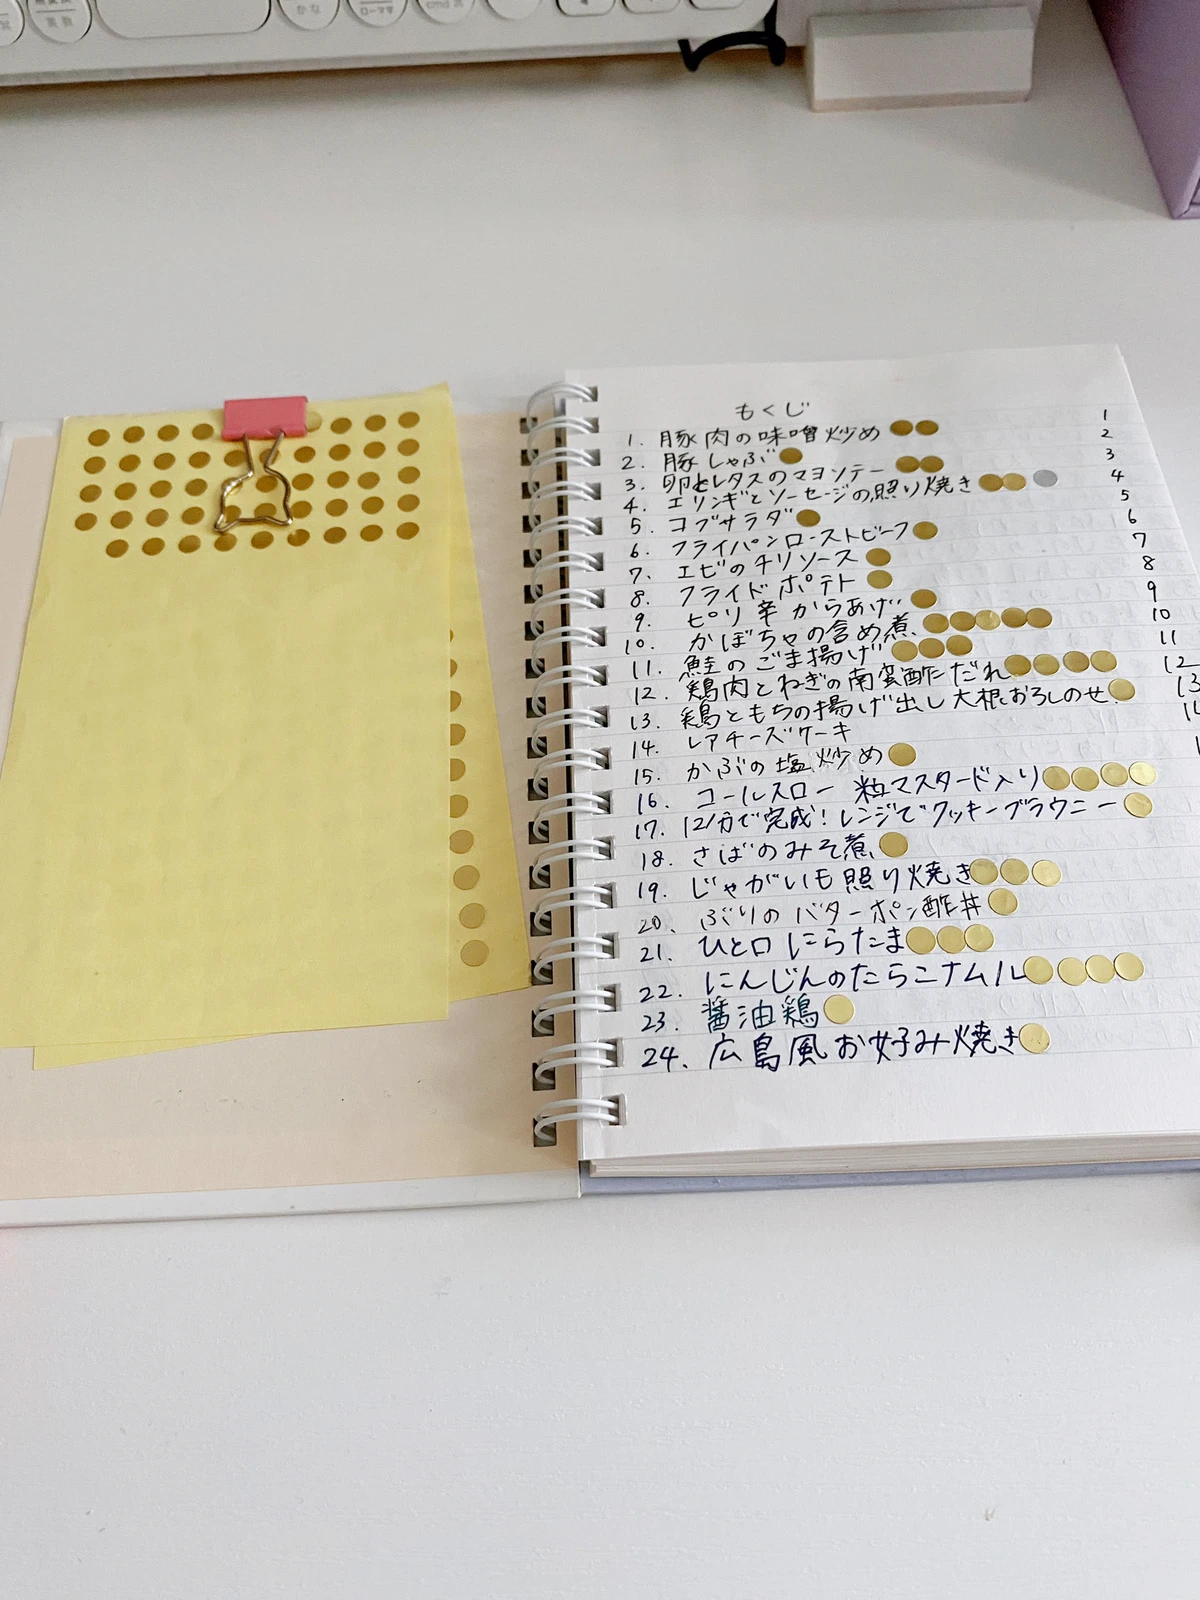 かな
ローマ字
cmd ⌘
英数
もくじ 1
1. 豚肉の味噌炒め 2
2. 豚しゃぶ 3
3. 卵とレタスのマヨソテー 4
4. エリンギとソーセージの照り焼き 5
5. コブサラダ 6
6. フライパンローストビーフ 7
7. エビのチリソース 8
8. フライドポテト 9
9. ピリ辛からあげ 10
10. かぼちゃの含め煮 11
11. 鮭のごま揚げ 12
12. 鶏肉とねぎの南蛮酢だれ 13
13. 鶏ともちの揚げ出し大根おろしのせ
14. レアチーズケーキ
15. かぶの塩炒め
16. コールスロー 粒マスタード入り
17. 12分で完成!レンジでクッキーブラウニー
18. さばのみそ煮
19. じゃがいも照り焼き
20. ぶりのバターポン酢丼
21. ひと口にらたま
22. にんじんのたらこナムル
23. 醤油鶏
24. 広島風お好み焼き